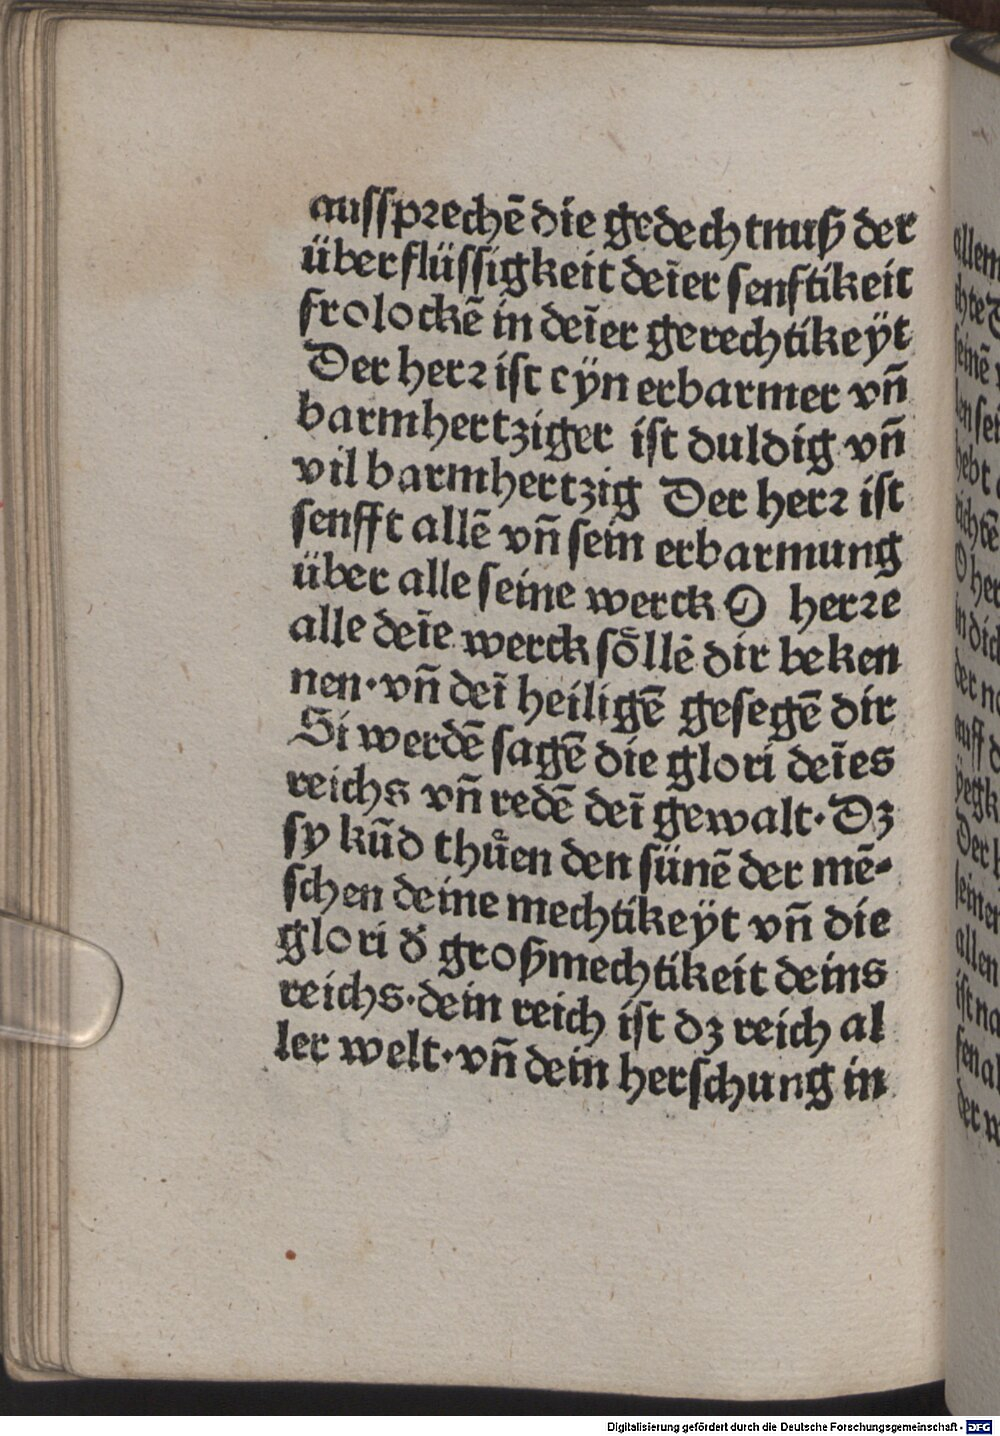 aussprechē die gedechtnuß der
überflüssigkeit deīer senftikeit
frolockē in deīer gerechtikeÿt
Der herꝛ ist eÿn erbarmer vn̄
barmhertziger ist duldig vn̄
vil barmhertzig Der herꝛ ist
senfft allē vn̄ sein erbarmung
über alle seine werck O herꝛe
alle deīe werck soͤllē dir beken
nen·vn̄ deī heiligē gesegē dir
Si werdē sagē die glori deīes
reichs vn̄ redē deī gewalt·Dz
sy kūd thuͤen den sünē der mē-
schen deine mechtikeÿt vn̄ die
glori d̕ großmechtikeit deins
reichs·dein reich ist dz reich al
ler welt·vn̄ dein herschung in
allem
chte D
seinē
len sei
hebt
richtē
O her
in dich
der
auff d
Der
seiner
allen
ist na
fen al
der w
Digitalisierung gefördert durch die Deutsche Forschungsgemeinschaft - DFG